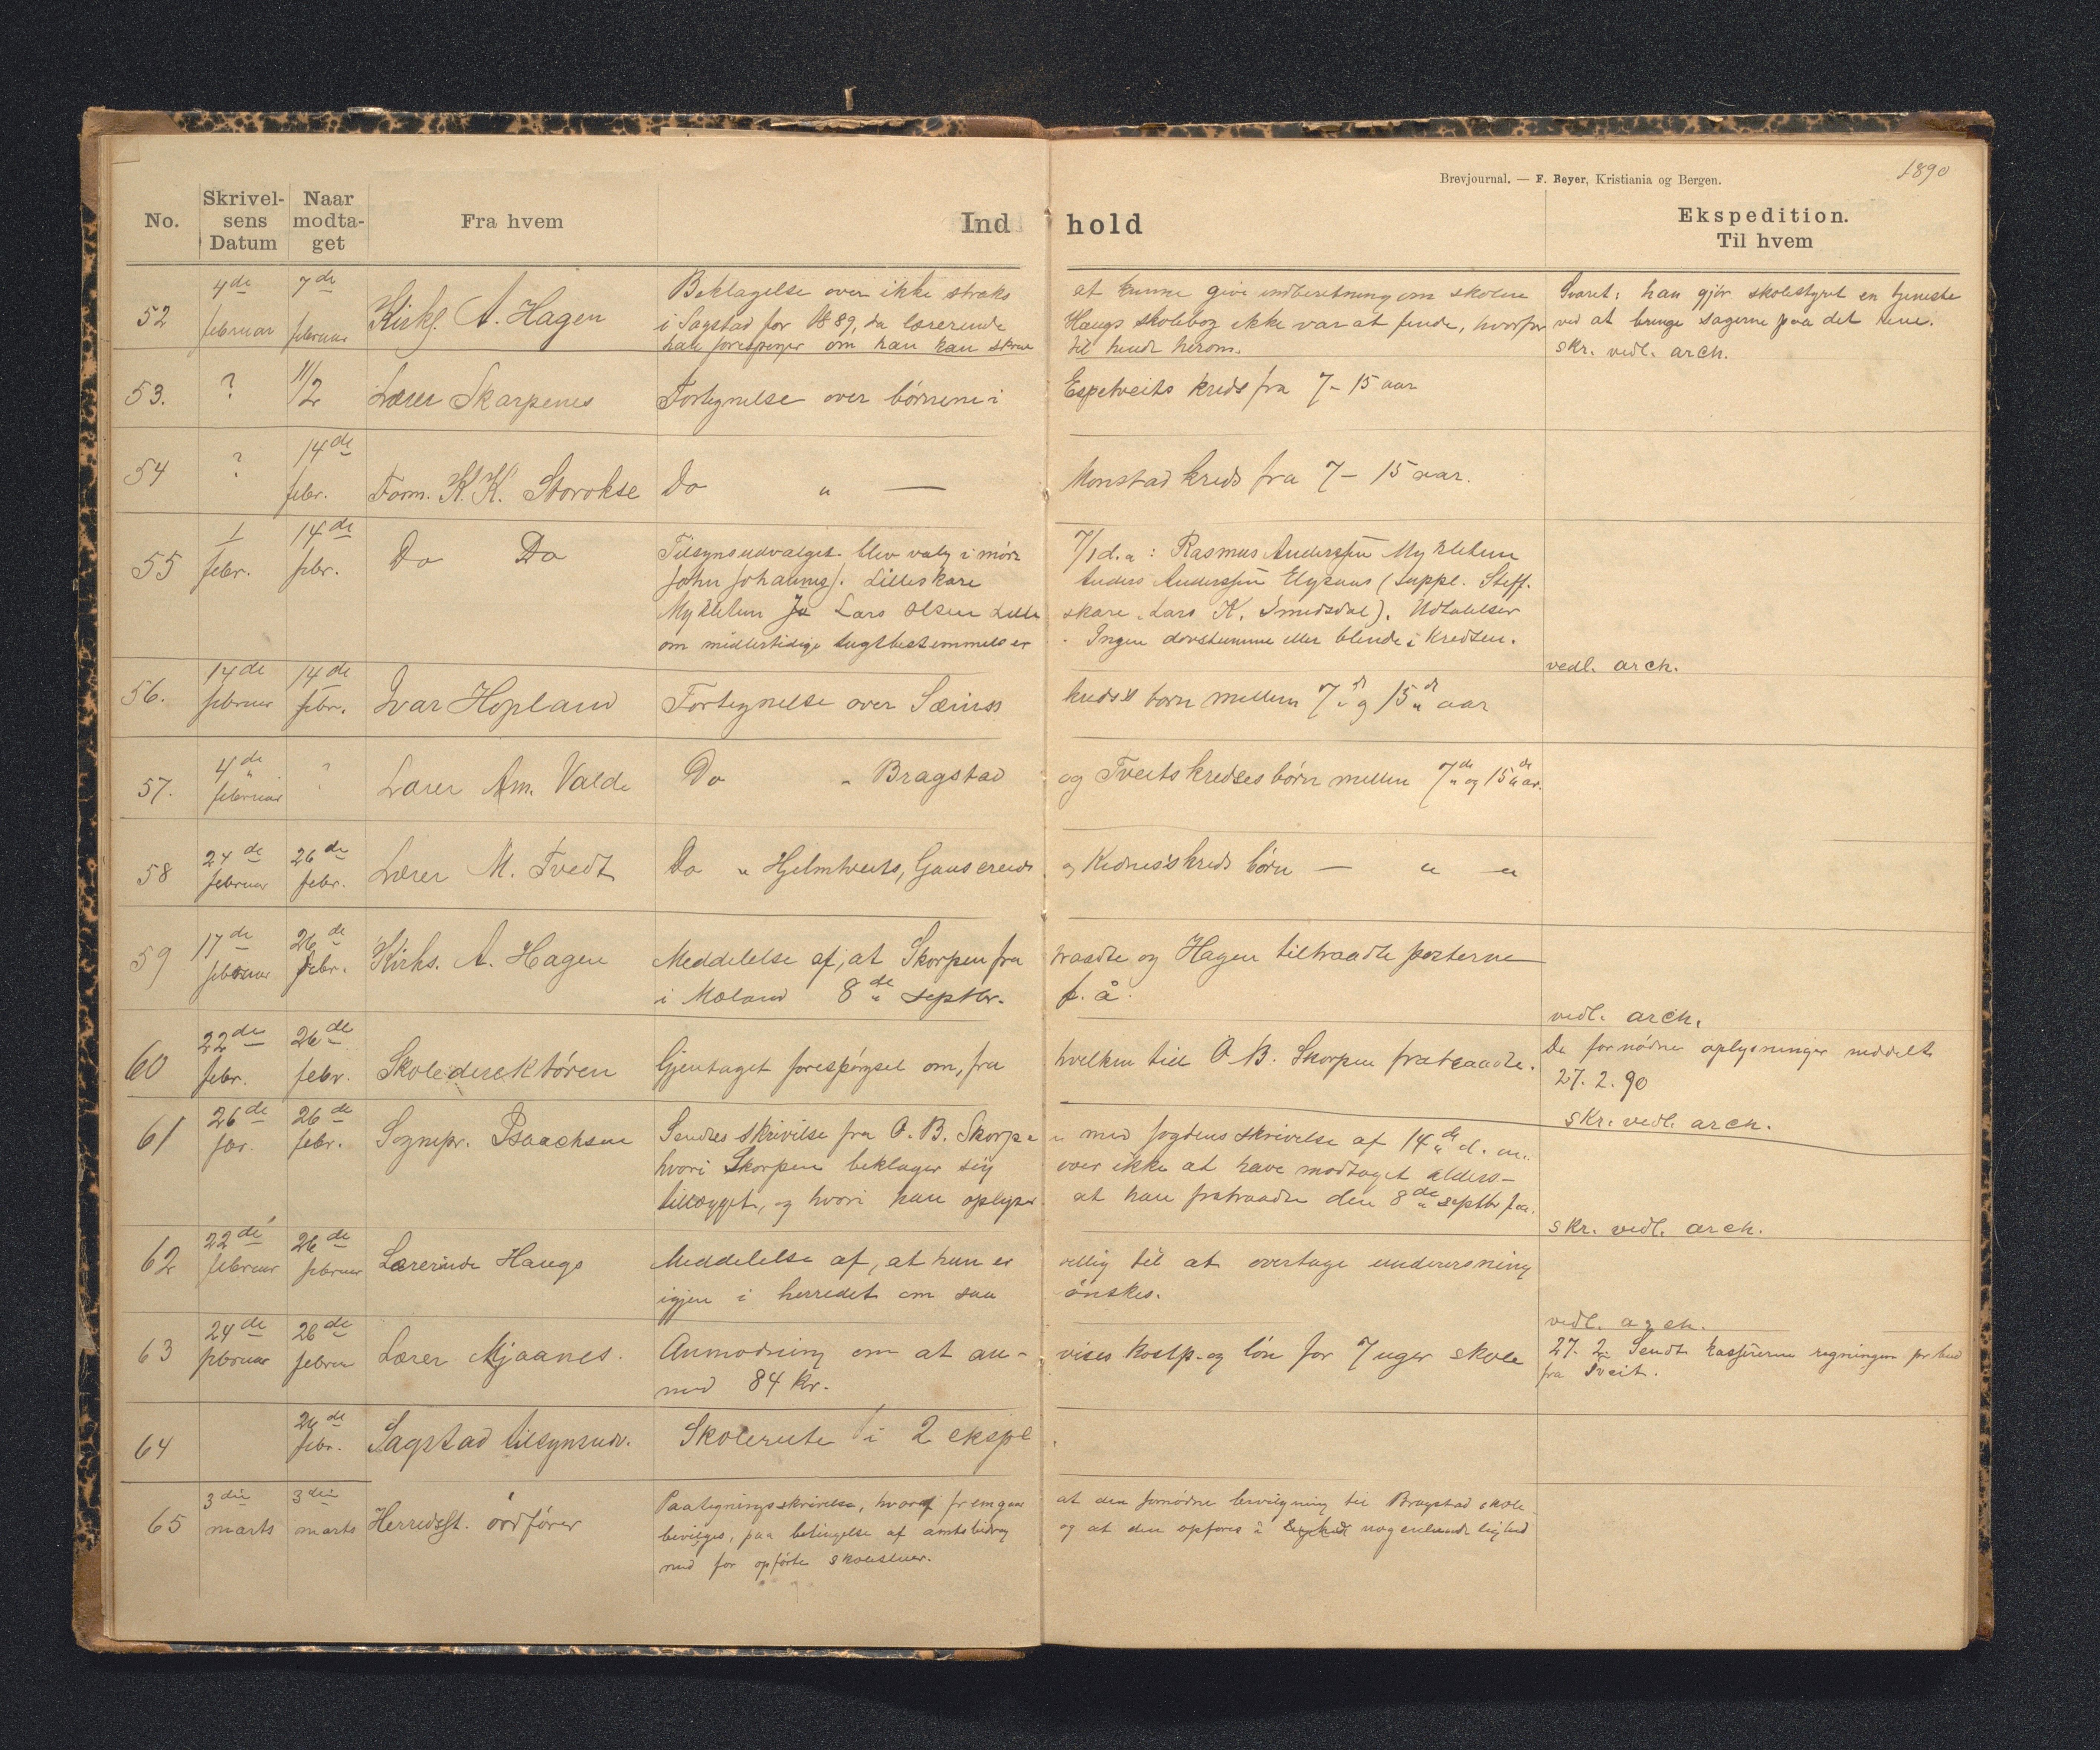 1890
Brevjournal. — F. Beyer, Kristiania og Bergen.
No.
Skrivel-
sens
Datum
Naar
modta-
get
Fra hvem
Ind
hold
Ekspedition.
Til hvem
52
4de
februar
7de
februar
Kirks. A. Hagen
Beklagelse over ikke straks
at kunne give indberetning om skolen
i Sagstad for 1889, da lærerinde
Haugs skolebog ikke var at finde, hvorfor
han forespørger om han kan skrive
til hende herom.
Svaret: han gjør skolestyret en tjeneste
ved at bringe sagerne paa det rene.
skr. vedl. arch.
53.
?
11/2
Lærer Skarpenes
Fortegnelse over børnene i
Espetveits kreds fra 7 - 15 aar
54
?
14de
febr.
Form. K. K. Storokse
Do " —
Monstad kreds fra 7 - 15 aar.
55
1
febr.
14de
febr.
Do Do
Tilsynsudvalget blev valg i møde
7/1 d.a: Rasmus Anderssen Mykletun
John Johanness. Lilleskare
Anders Anderssen (suppl. Steff.
Mykletun Lars Olsen Lille
skare, Lars K. Smedsdal). Udtalelser
om midlertidige tugtbestemmelser
. Ingen døvstumme eller blinde i kredsen.
vedl. arch.
56.
14de
februar
14de
febr.
Ivar Hopland
Fortegnelse over Sæims
kreds's børn mellem 7de og 15de aar
57.
4de
februar
?
Lærer Am. Valde
Do " Bragstad
og Tveits kredses børn mellem 7de og 15de aar.
58
24de
februar
26de
febr.
Lærer M. Tvedt
Do " Hjelmtveits, Gaasereids
og Kidnes's kreds børn — " "
59
17de
februar
26de
febr.
Kirks. A. Hagen
Meddelelse af, at Skorpen fra
traadte og Hagen tiltraadte posterne
i Moland 8de septbr.
f. å.
vedl. arch.
60
22de
febr.
26de
febr.
Skoledirektøren
Gjentaget forespørgsel om, fra
hvilken tid O. B. Skorpen fratraadte.
De fornødne oplysninger meddelt
27. 2. 90
skr. vedl. arch.
61
26de
26de
febr.
Sognepr. Isaachsen
Sendes skrivelse fra O. B. Skorpe
n med fogdens skrivelse af 14de d. m.
hvori Skorpen beklager sig
over ikke at have modtaget alders-
tillægget, og hvori han oplyser
at han fratraadte den 8de septbr f.a.
skr. vedl. arch.
62
22de
februar
26de
februar
Lærerinde Haugs
Meddelelse af, at hun er
villig til at overtage undervisning
igjen i herredet om saa
ønskes.
vedl. arch.
63
24de
februar
26de
februar
Lærer Mjaanes.
Anmodning om at an-
vises kostp. og løn for 7 uger skole
med 84 kr.
27. 2. Sendt kassereren regningen pr bud
fra Tveit.
64
26de
febr.
Sagstad tilsynsudv.
Skolerute i 2 ekspl
.
65
3die
marts
3die
marts
Herredsst. ordfører
Paategningsskrivelse, hvoraf fremgaar
at den fornødne bevilgning til Bragstad skole
bevilges, paa betingelse af amtsbidrag
og at den opføres i nogenlunde lighed
med før opførte skolestuer.